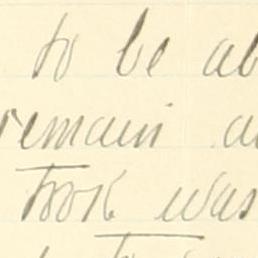 to be ab
remain a
took was